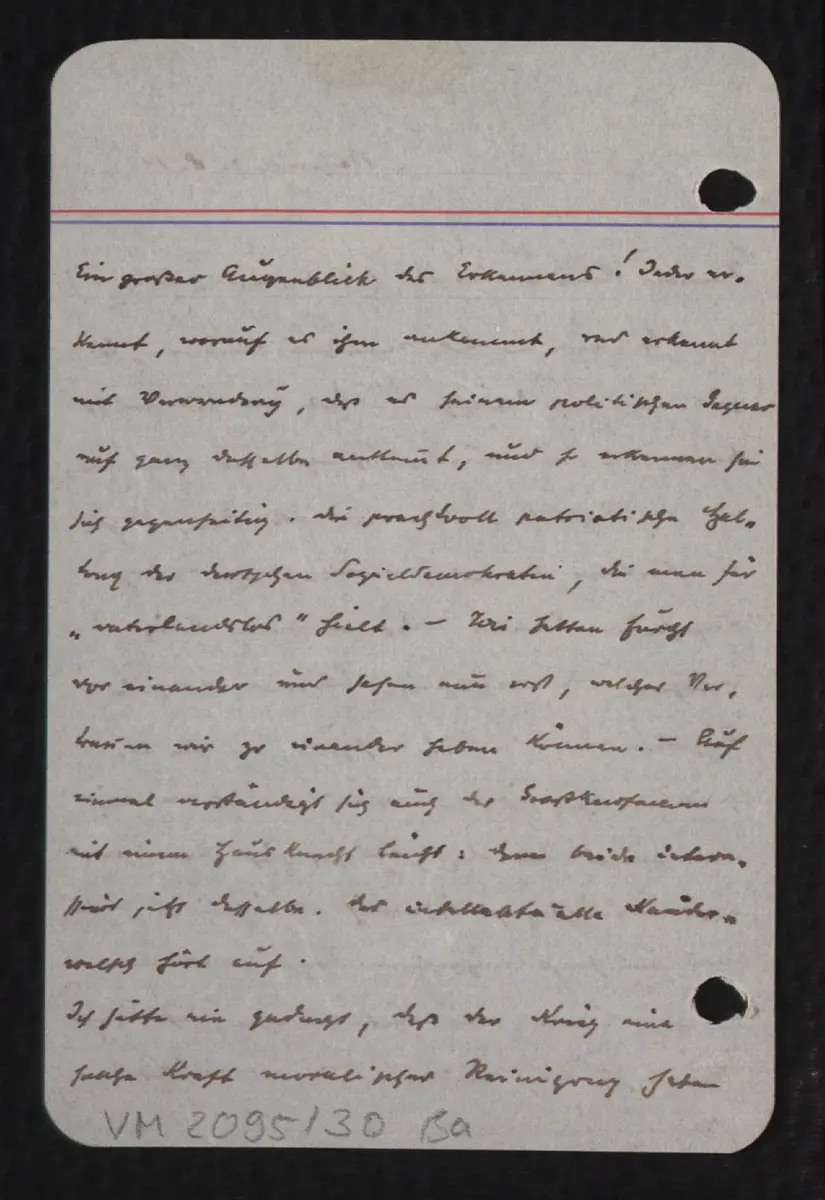 Ein großer Augenblick des Erkennens! Jeder er-
kennt, worauf es ihm ankommt, und erkennt
mit Verwunderung, daß es seinem politischen Gegner
auf ganz dasselbe ankommt, und so erkennen sie
sich gegenseitig. Die prachtvoll patriotische Hal-
tung der deutschen Sozialdemokratie, die man für
„vaterlandslos" hielt. – Wir hatten Furcht
vor einander und sehen nun erst, welches Ver-
trauen wir zu einander haben können. – Auf
einmal verständigt sich auch der Großkaufmann
mit einem Hausknecht leicht: denn beide interes-
siert jetzt dasselbe. Das intellektuelle Kauder-
welsch hört auf.
Ich hätte nie gedacht, daß der Krieg eine
solche Kraft moralischer Reinigung haben
VM 2095/30 Ba